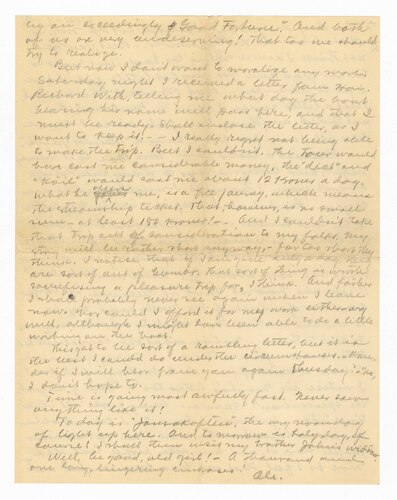 by an exceedingly "Good Fortune". And both
of us are very undeserving! That too we should
try to realize.
But now I don't want to moralize any more.
Saturday night I received a letter from Hon.
Richard With, telling me what day the boat
bearing his name will pass here, and that I
must be ready. Shall enclose the letter, as I
want to keep it. - I really regret not being able
to make the trip. But I couldn't, the Tour would
have cost me considerable money, the "diet" and
would cost me about 12 Kroner a day.
What he offers me, is a free passage, which means
the steamship ticket. That however, is no small
sum - at least 150 kroner! - And I couldn't take
that trip out of consideration to my folks. My
stay will be rather short anyway. - Far too short they
think. I notice that if I am gone only a day they
are sort of out of humor. That sort of thing is worth
sacrifising a pleasure trip for, I think. And father
I shall probably never see again when I leave
now. Nor could I afford it for my work either very
well, although I might have been able to do a little
writing on the boat.
This got to be sort of a rambling letter, but it is
the best I could do under the circumstances. - Won-
der if I will hear from you again Thursday? - Yes,
I don't hope to.
Time is going most awfully fast. Never saw
anything like it!
Today is "Jonsokaften", the very noonday
of light up here. And to-morrow is holy day, of
course! I shall then visit my brother John's
Well, be good, old girl! - A thousand and
one long, lingering
Ole.